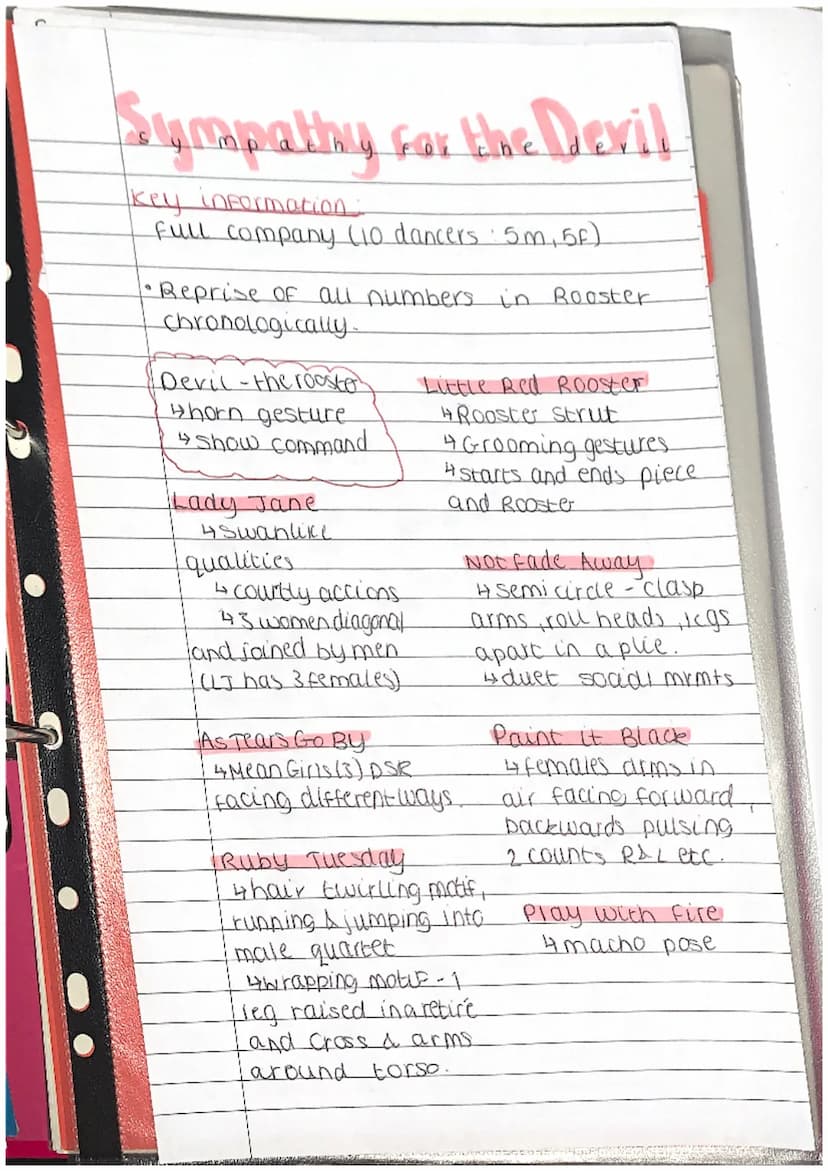 Sympathy for the Devil
sympathy for the devil
Key information:
Full company (10 dancers : 5m, 5f)
• Reprise of all numbers in Rooster
chronologically.
Devil - the rooster
↳ horn gesture
↳ show command
Lady Jane
↳ swanlike
qualities
↳ courtly actions
↳ 3 women diagonal
and joined by men
(LJ has 3 females)
As Tears Go By
↳ Mean Girls (3) DSR
facing different ways.
Ruby Tuesday
↳ hair twirling motif,
running & jumping into
male quartet
↳ wrapping motif - 1
leg raised in a retiré
and cross & arms
around torso.
Little Red Rooster
↳ Rooster strut
↳ Grooming gestures
↳ starts and ends piece
and Rooster
Not Fade Away
↳ semi circle - clasp
arms, roll heads, legs
apart in a plie.
↳ duet social mvmts
Paint it Black
↳ females arms in
air facing forward,
backwards pulsing
2 counts R&L etc.
Play with Fire
↳ macho pose